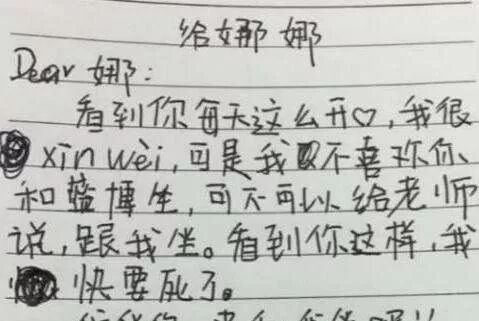 给娜娜
Dear 娜:
看到你每天这么开♡,我很
xin wèi,可是我不喜欢你
和蓝博生,可不可以给老师
说,跟我坐。看到你这样,我
快要死了。